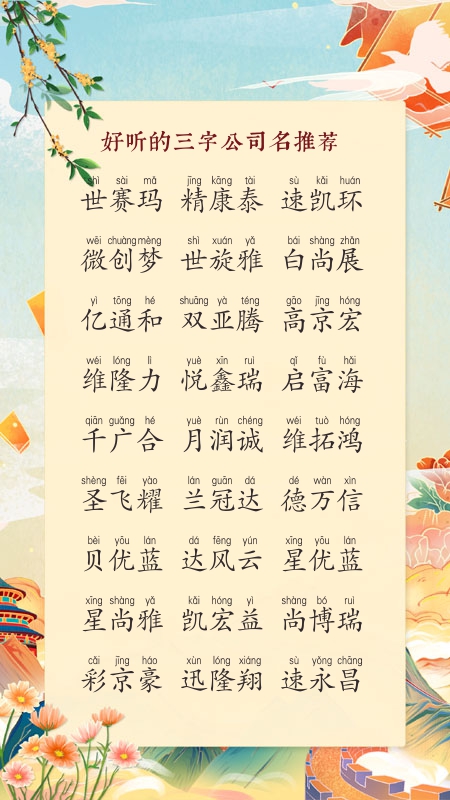 好听的三字公司名推荐
shì sài mǎ jīng kāng tài sù kǎi huán
世赛玛 精康泰 速凯环
wēi chuàng mèng shì xuán yǎ bái shàng zhǎn
微创梦 世旋雅 白尚展
yì tōng hé shuāng yà téng gāo jīng hóng
亿通和 双亚腾 高京宏
wéi lóng lì yuè xīn ruì qǐ fù hǎi
维隆力 悦鑫瑞 启富海
qiān guǎng hé yuè rùn chéng wéi tuò hóng
千广合 月润诚 维拓鸿
shèng fēi yào lán guān dá dé wàn xìn
圣飞耀 兰冠达 德万信
bèi yōu lán dá fēng yún xīng yōu lán
贝优蓝 达风云 星优蓝
xīng shàng yǎ kǎi hóng yì shàng bó ruì
星尚雅 凯宏益 尚博瑞
cǎi jīng háo xùn lóng xiáng sù yǒng chāng
彩京豪 迅隆翔 速永昌